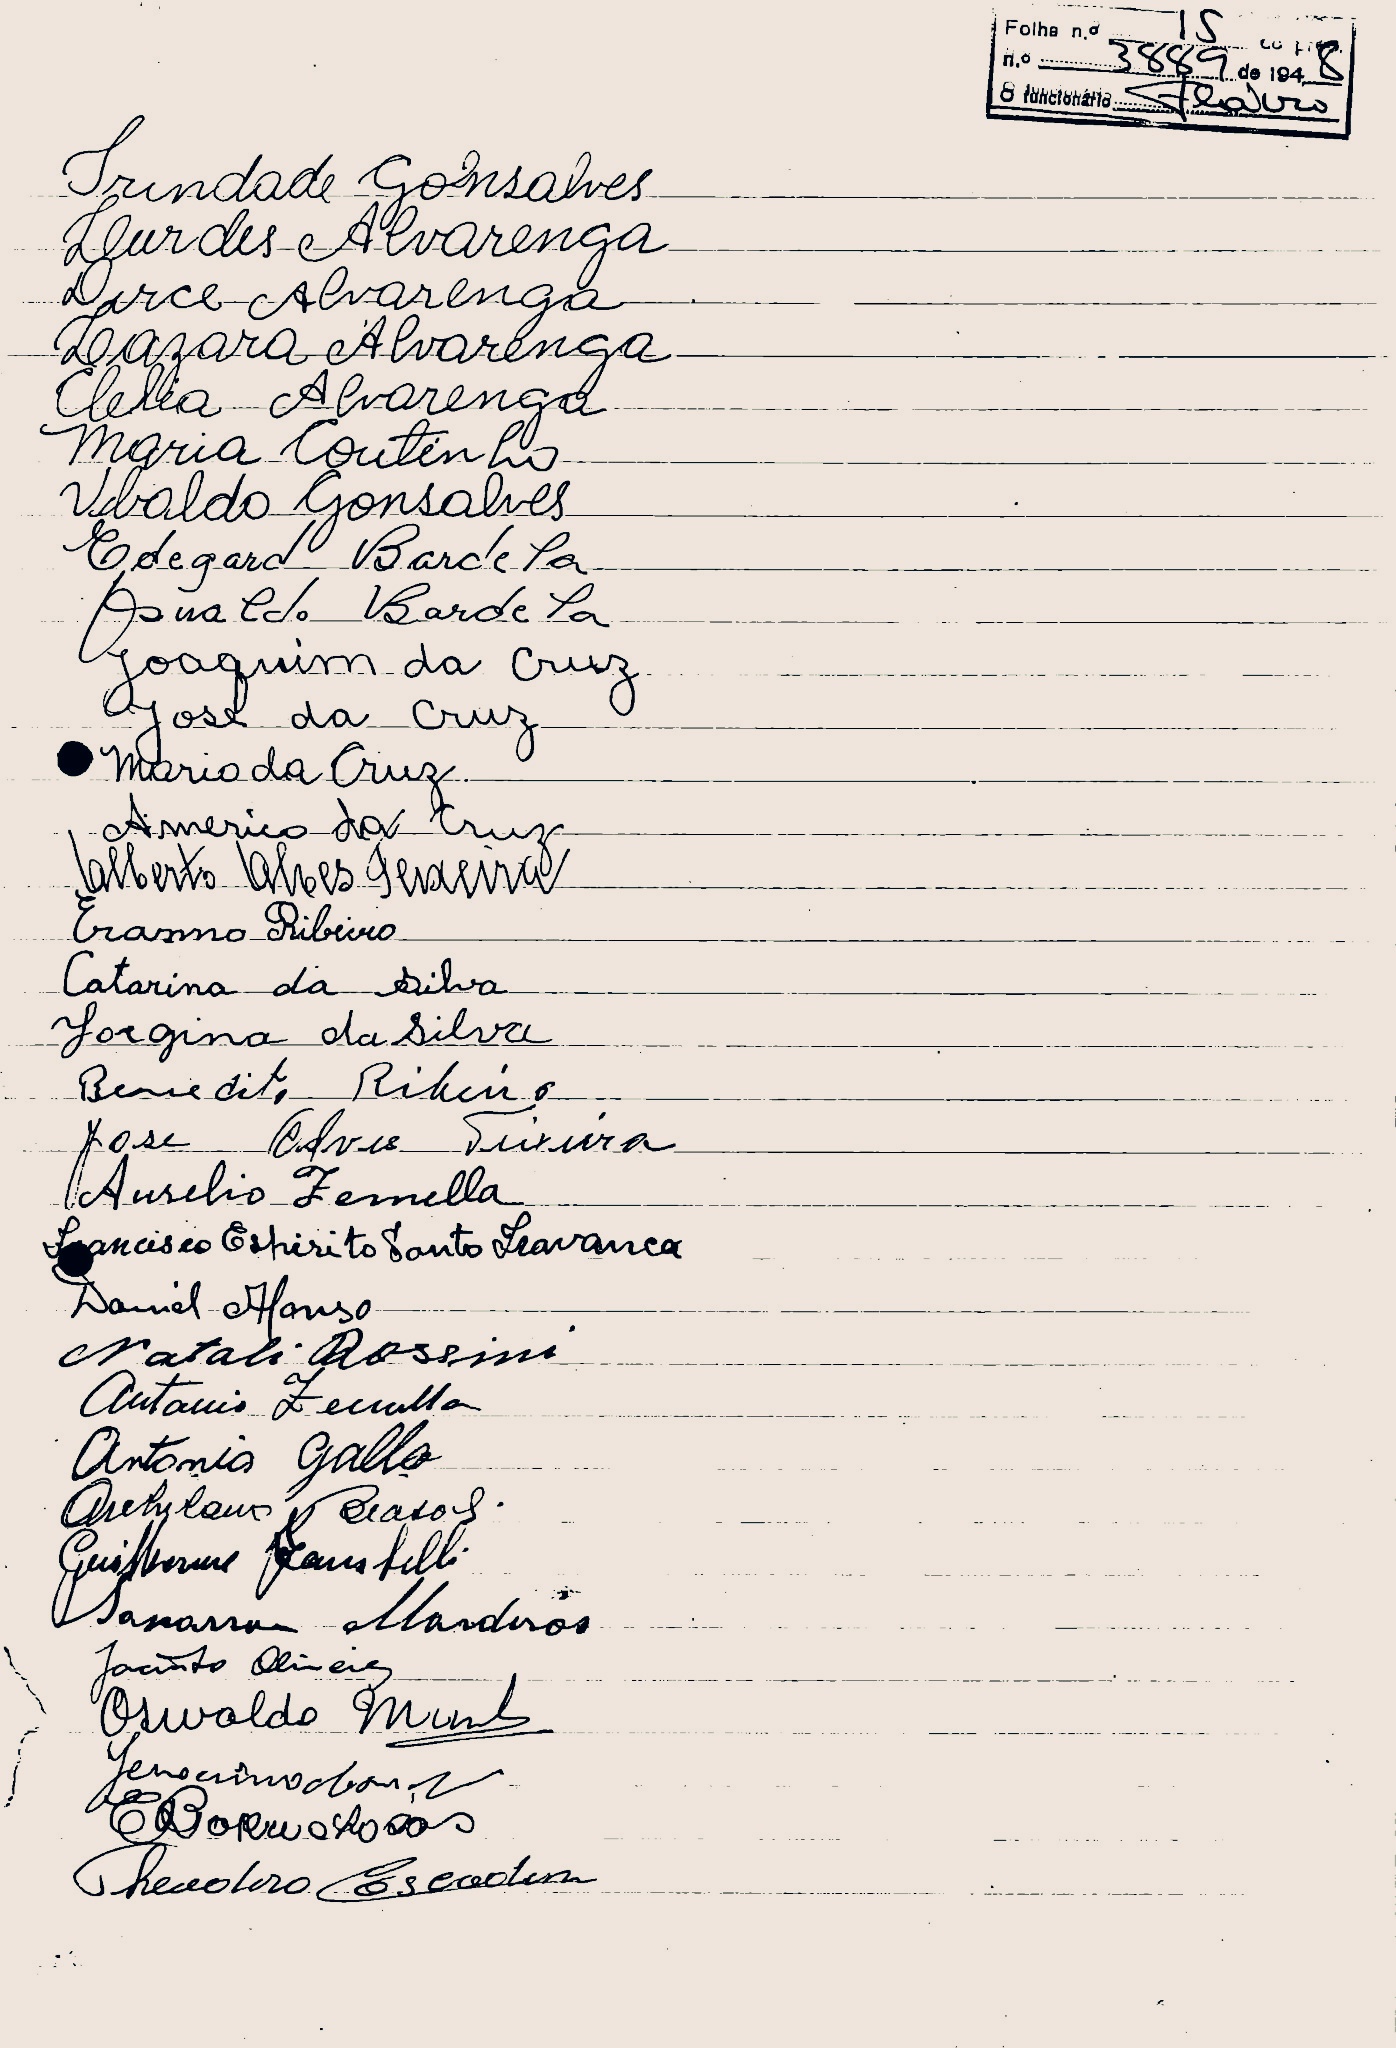 Folha n.º 15 do proc.
n.º 3889 de 1948
O funcionário
Trindade Gonsalves
Lurdes Alvarenga
Dirce Alvarenga
Lazara Alvarenga
Clelia Alvarenga
Maria Coutinho
Ubaldo Gonsalves
Edegard Bardela
Osvaldo Bardela
Joaquim da Cruz
José da Cruz
Mario da Cruz
Americo da Cruz
Alberto Alves Teixeira
Erasmo Ribeiro
Catarina da Silva
Jorgina da Silva
Benedito Ribeiro
Jose Alves Teixeira
Aurelio Zemella
Francisco Espirito Santo Travanca
Daniel Afonso
Natali Rossini
Antonio Zemella
Antonio Gallo
Guilherme
Jacinto
Oswaldo
Theodoro